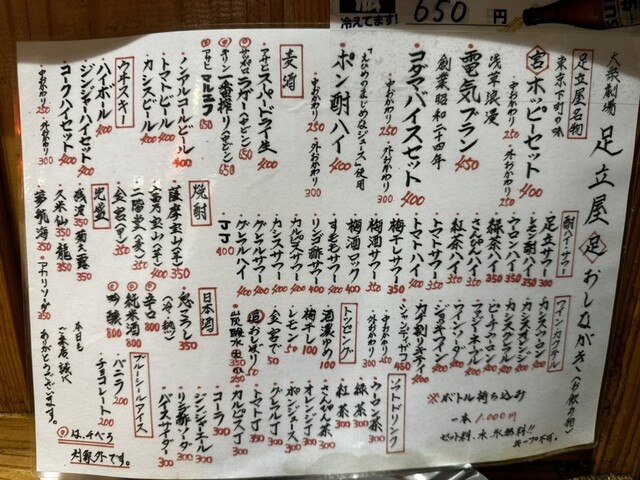 冷えてます!
650円
大衆劇場 足立屋 足 おしながき (お飲み物)
足立屋名物
東京下町の味
吉 ホッピーセット 400
中おかわり 250
外おかわり 250
浅草浪漫
電気ブラン 450
創業昭和二十四年
コダマバイスセット 400
中おかわり 250
外おかわり 300
「えひめのまじめなジュース」使用
ポン酎ハイ 400
麦酒
アサヒスペードライ生 400
サッポロラガー(中ビン) 650
キリン一番搾り(中ビン) 650
アサヒマルエフ 650
ノンアルコールビール 400
トマトビール 400
カシスビール 400
ウヰスキー
ハイボール 400
ジンジャーハイセット 400
コークハイセット 400
中おかわり 250
外おかわり 300
酎ハイ・サワー
足立サワー 300
レモン酎ハイ 350
ウーロンハイ 350
緑茶ハイ 350
さんぴんハイ 350
紅茶ハイ 350
トマトハイ 350
トマトサワー 350
梅干しサワー 350
梅酒サワー 350
梅酒ロック 400
すもも サワー 400
リンゴ酢サワー 400
カルピスサワー 400
カシスサワー 400
グラレルサワー 400
グラレルハイ 400
JJ 400
焼酎
薩摩宝山(芋) 350
富乃宝山(芋) 400
二階堂(麦) 350
金宮(甲) 350
泡盛
残波 350
菊之露 350
久米仙 350
龍 350
夢航海 350
ワイン・カクテル
カシスソーダ
カシスウーロン
カシスオレンジ
ピーチウーロン
ファジーネーブル
ジンジャーワイン
キティ
シャンディガフ 450
トッピング
酒濃いめ 100
梅干し 100
レモン 50
金宮で 50
追おしぼり 50
炭酸水
日本酒
忽こうし 350
(冷・熱)
辛口 800
純米酒 800
吟醸 800
ブルーシールアイス
バニラ 200
チョコレート 200
ソフトドリンク
ウーロン茶 300
緑茶 300
紅茶 300
さんぴん茶 300
オレンジJ 300
ポンジュース 300
グラレルJ 300
トマトJ 300
カルピスJ 300
コーラ 300
ジンジャーエール 300
リンゴ酢ソーダ 300
バイスサイダー 300
※ボトル持ち込み
一本 1,000円
セット料、水、氷無料!!
キープ不可。
本日もご来店誠にありがとうございます。
は、千べろ対象外です。